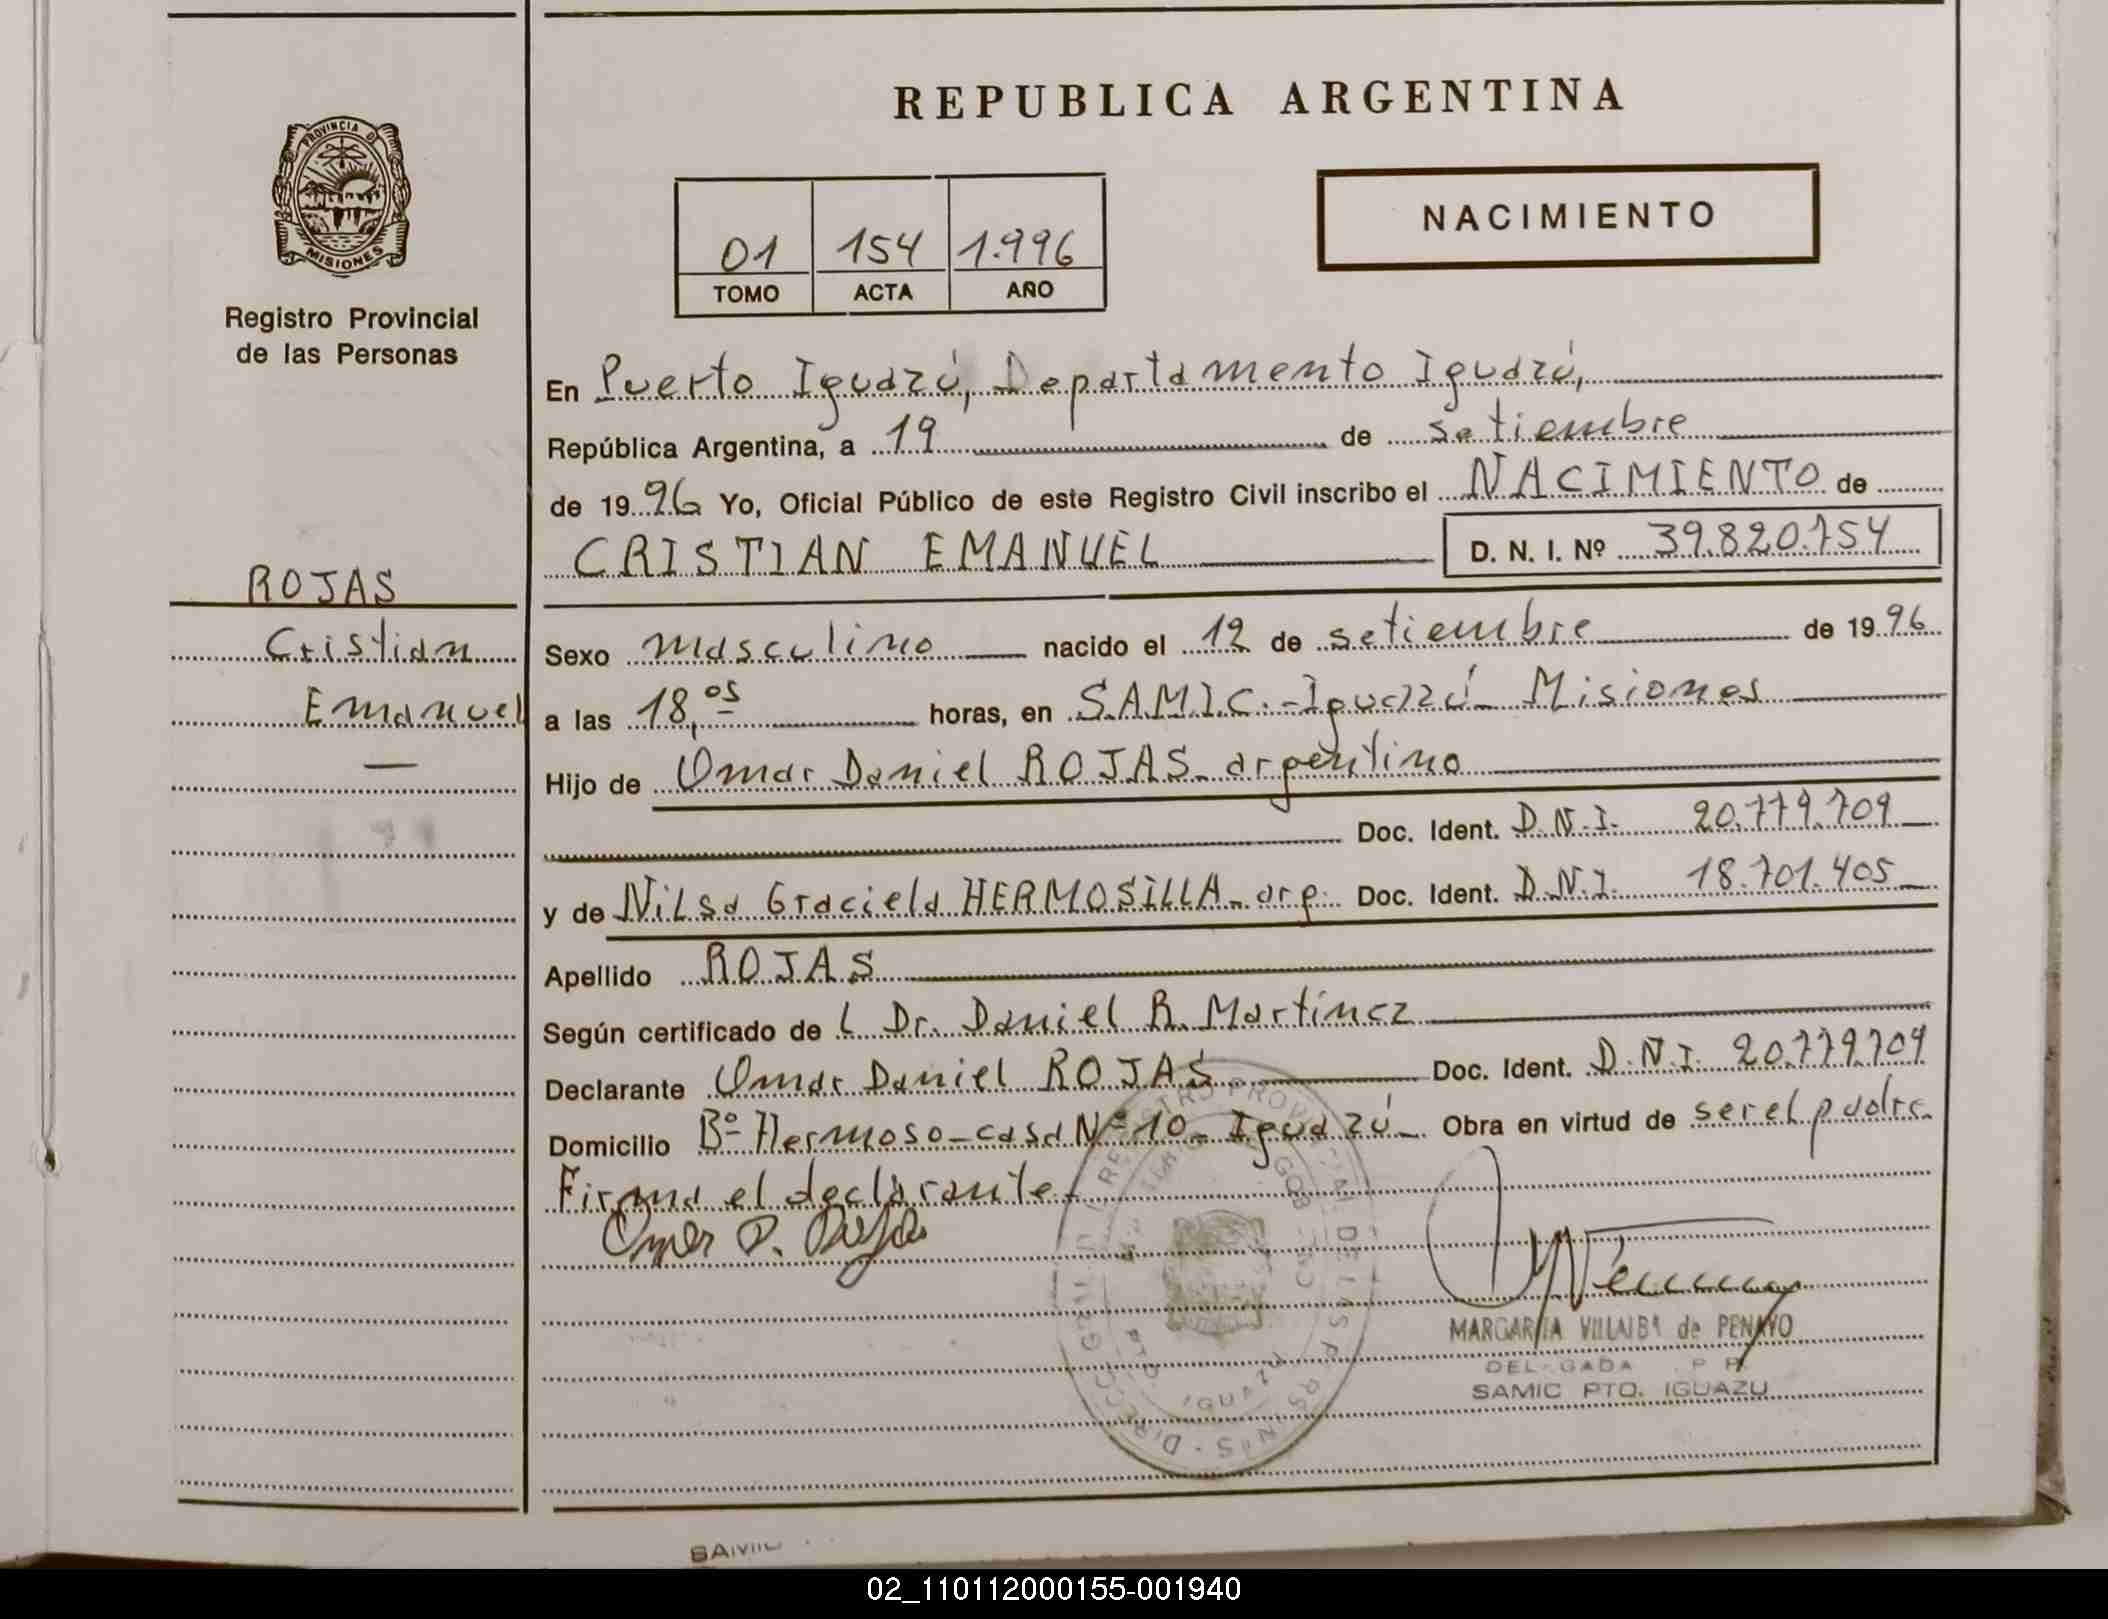 REPUBLICA ARGENTINA
PROVINCIA D
MISIONES
Registro Provincial
de las Personas
NACIMIENTO
01 154 1.996
TOMO ACTA AÑO
En Puerto Iguazú, Departamento Iguazú,
República Argentina, a 19 de setiembre
de 1996 Yo, Oficial Público de este Registro Civil inscribo el NACIMIENTO de
CRISTIAN EMANUEL D. N. I. Nº 39.820.754
ROJAS
Cristian
Emanuel
—
Sexo masculino nacido el 12 de setiembre de 1996
a las 18,05 horas, en S.A.M.I.C.-Iguazú- Misiones
Hijo de Omar Daniel ROJAS- argentino
Doc. Ident. D.N.I. 20.779.709
y de Nilsa Graciela HERMOSILLA- arg. Doc. Ident. D.N.I. 18.701.405
Apellido ROJAS
Según certificado de l Dr. Daniel R. Martínez
Declarante Omar Daniel ROJAS Doc. Ident. D.N.I. 20.779.709
Domicilio Bº Hermoso-casa Nº 10- Iguazú- Obra en virtud de ser el padre
Firma el declarante-
Omar D. Rojas
MARGARITA VILLALBA de PENAYO
SAMIC PTO. IGUAZU
SAMIC
02_110112000155-001940